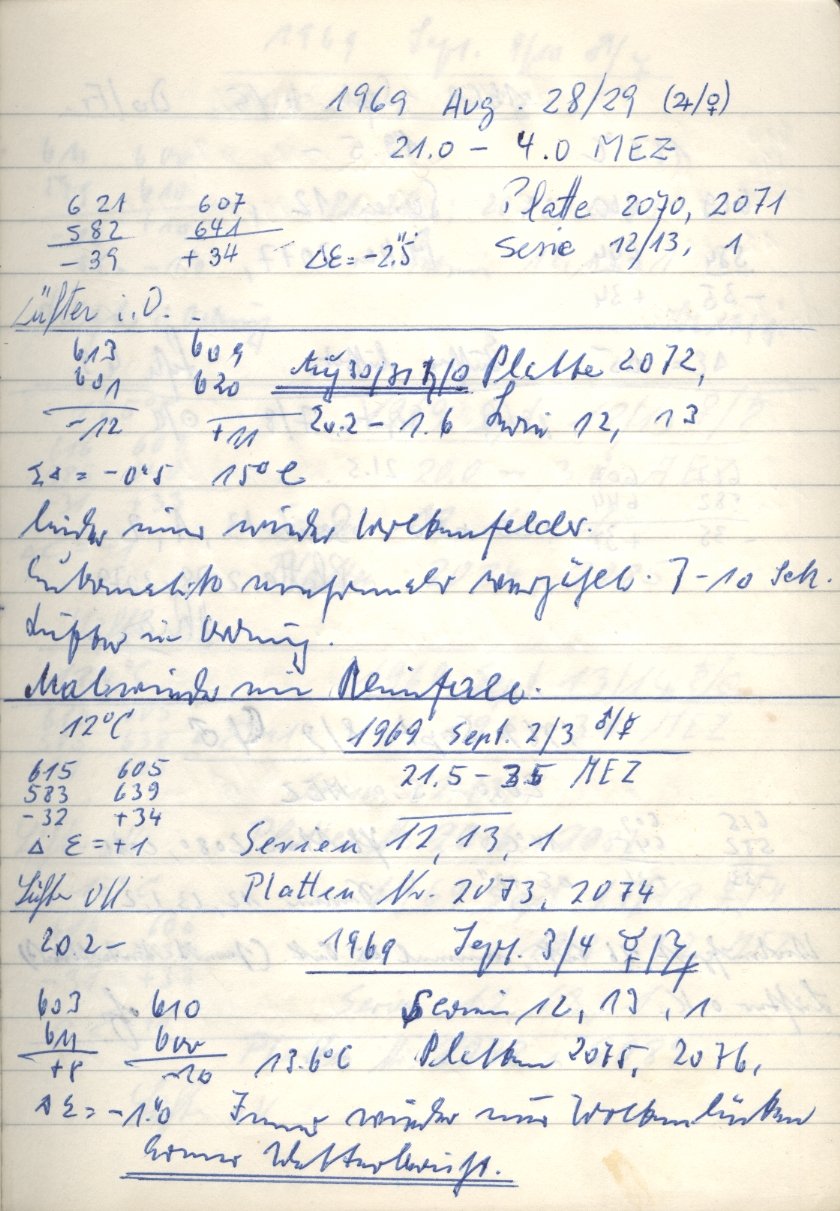 1969 Aug. 28/29 (♃/♀)
21.0 – 4.0 MEZ
621 607 Platte 2070, 2071
582 641 Serie 12/13, 1
-39 +34 ΔE = -2."5
Lüfter i.O.
613 609 Aug 30/31 ♄/☉ Platte 2072,
601 620
-12 +11 20.2 – 1.6 Serien 12, 13
= -0."5 15° C
leider nur wieder Wolkenfelder.
7-10 Sek.
Lüfter in Ordnung.
Mal wieder ein Reinfall.
12°C 1969 Sept. 2/3 ♂/☿
615 605 21.5 – MEZ
583 639
-32 +34
Δ E = +1 Serien 12, 13, 1
Lüfter Platten Nr. 2073, 2074
20.2 – 1969 Sept. 3/4 ☿/♃
603 610 Serien 12, 13, 1
611 600
+8 -10 13.6°C Platten 2075, 2076,
ΔE = -1."0 Immer wieder nur Wolkenlücken
Wetterbericht.